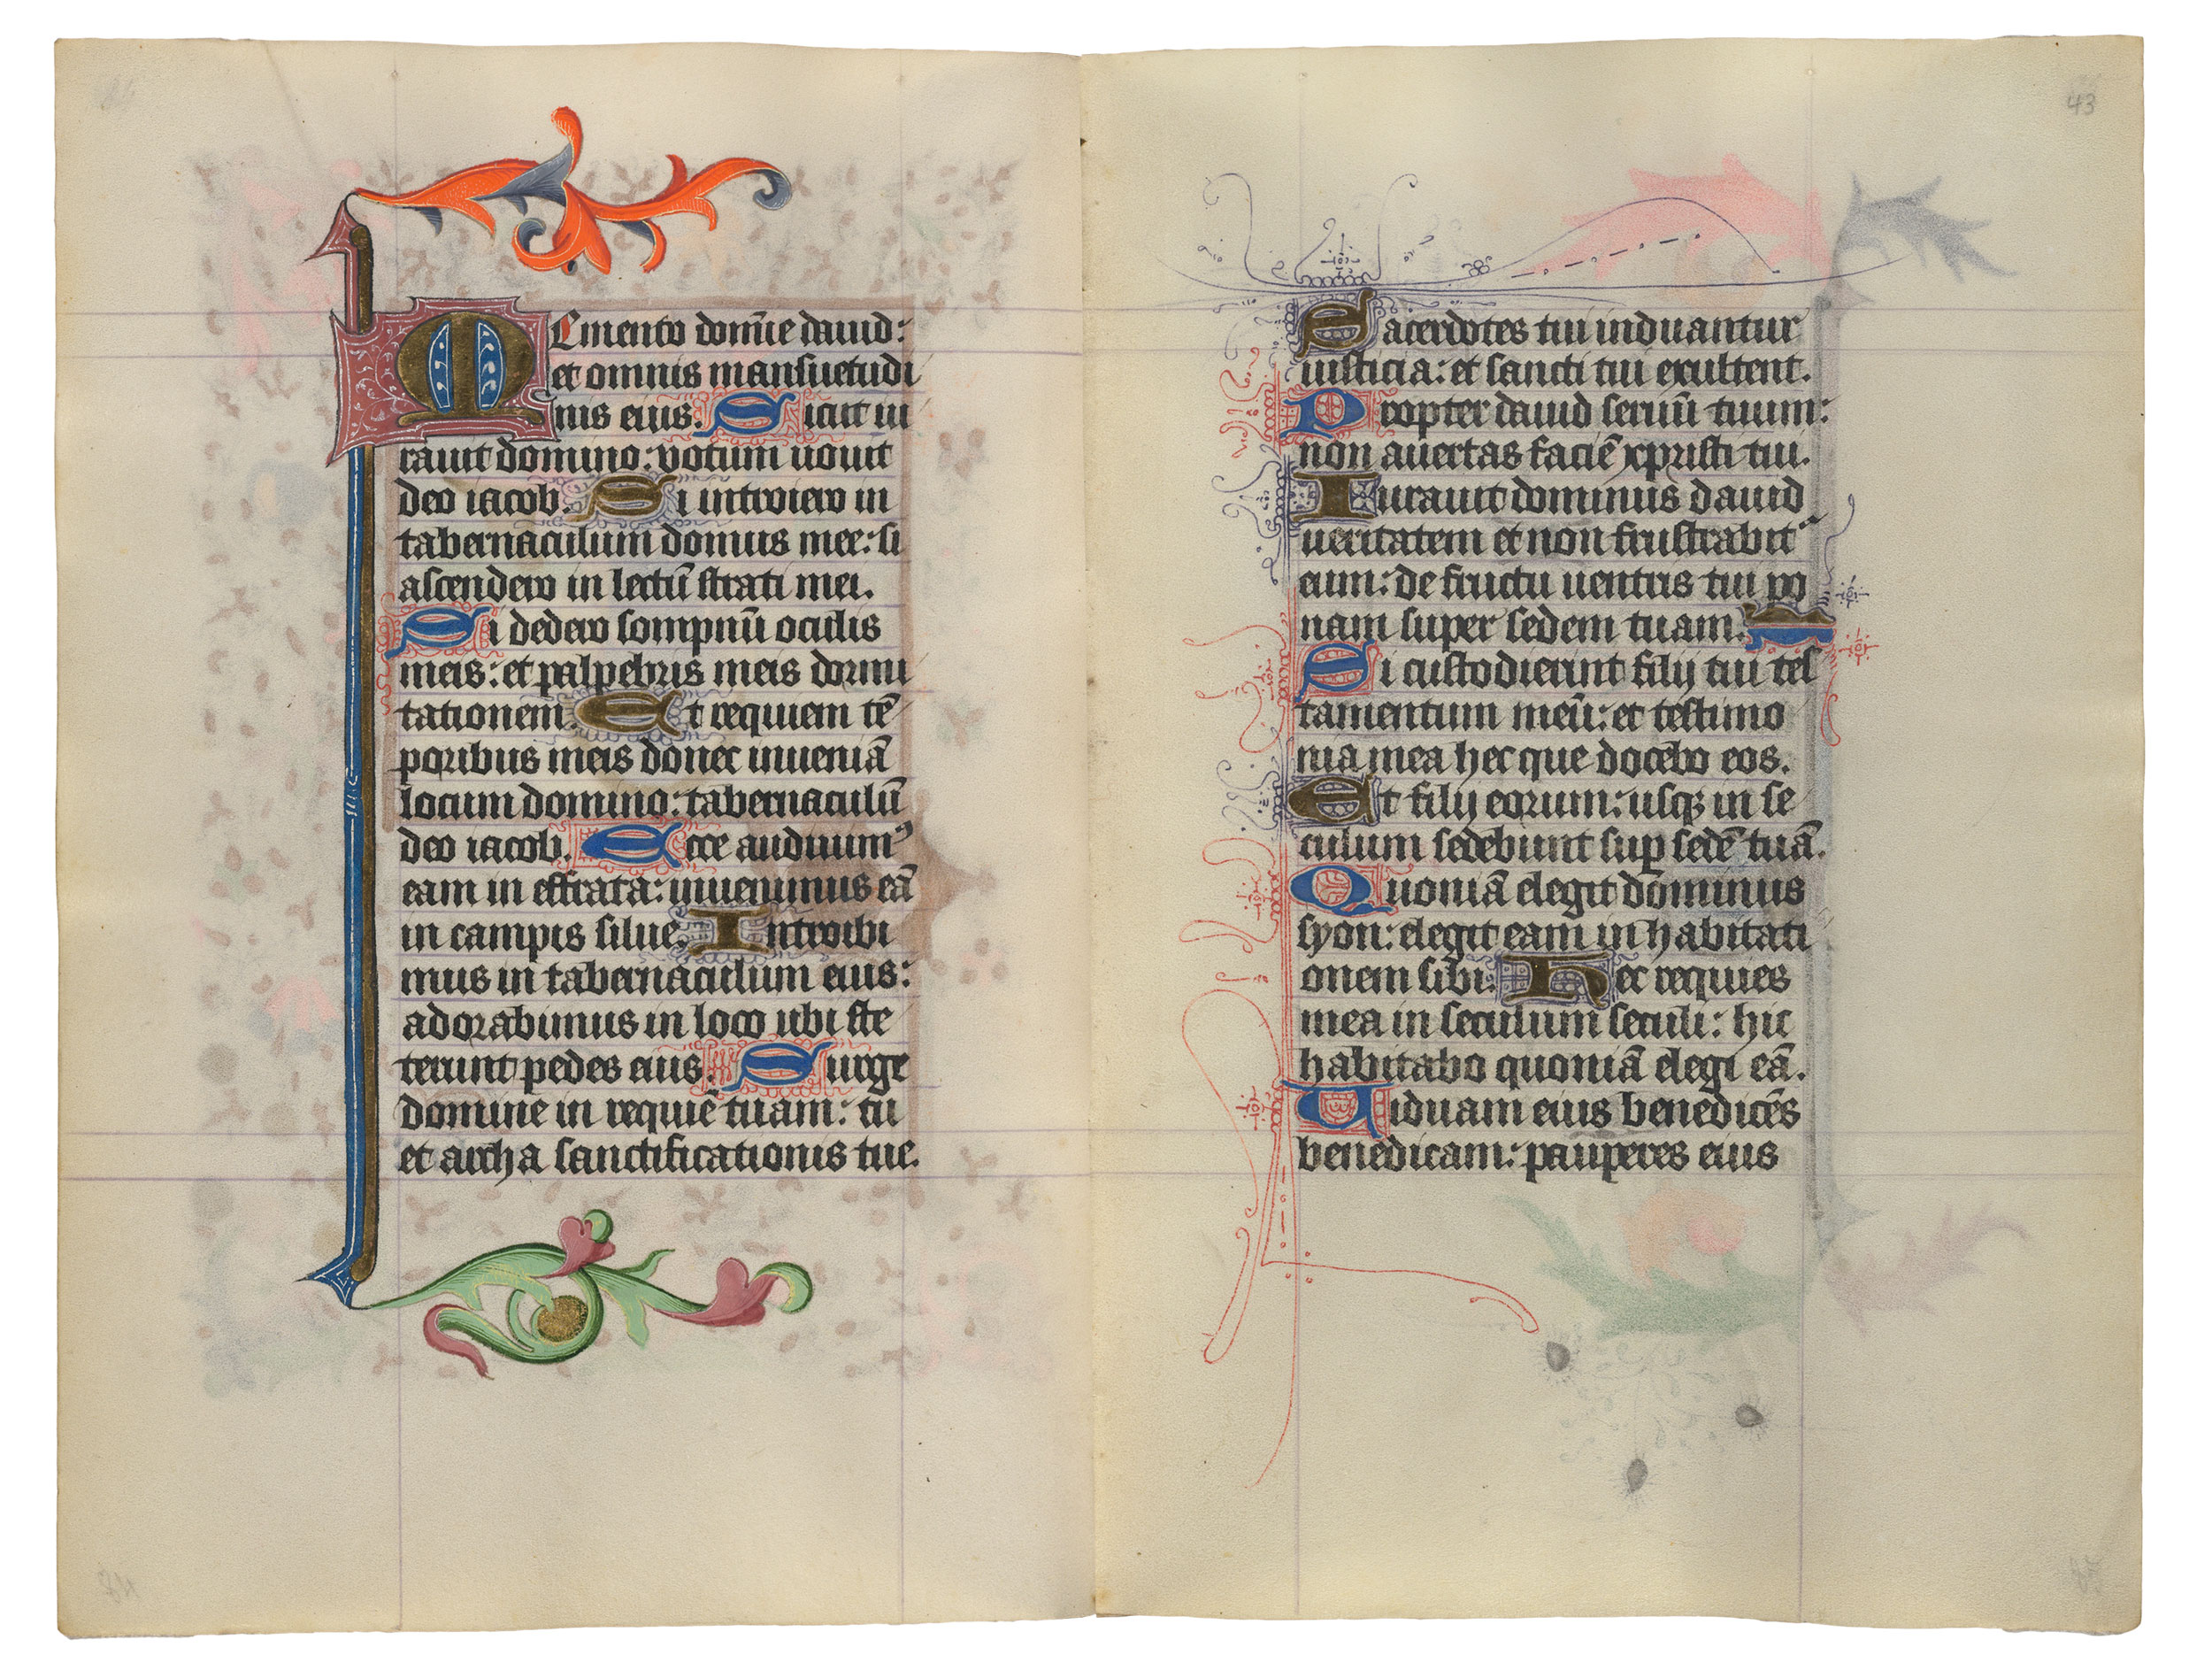 Memento domīe dauid:
et omnis mansuetudi
nis eius. Sicut iu
rauit domino: votum uouit
deo iacob. Si introiero in
tabernaculum domus mee: si
ascendero in lectū strati mei.
Si dedero sompnū oculis
meis: et palpebris meis dormi
tationem. Et requiem tē
poribus meis donec inueniā
locum domino: tabernaculū
deo iacob. Ecce audiuimꝰ
eam in effrata: inuenimus eā
in campis silue. Introibi
mus in tabernaculum eius:
adorabimus in loco ubi ste
terunt pedes eius. Surge
domine in requiē tuam: tu
et archa sanctificationis tue.
43
Sacerdotes tui induantur
iusticia: et sancti tui exultent.
Propter dauid seruū tuum:
non auertas faciē xpristi tui.
Iurauit dominus dauid
ueritatem et non frustrabit᷑
eum: de fructu uentris tui po
nam super sedem tuam.
Si custodierint filij tui tes
tamentum meū: et testimo
nia mea hec que docebo eos.
Et filij eorum: usqꝫ in se
culum sedebunt suꝑ sedē tuā.
Quoniā elegit dominus
syon: elegit eam in habitati
onem sibi. Hec requies
mea in seculum seculi: hic
habitabo quoniā elegi eā.
Uiduam eius benedicēs
benedicam: pauperes eius